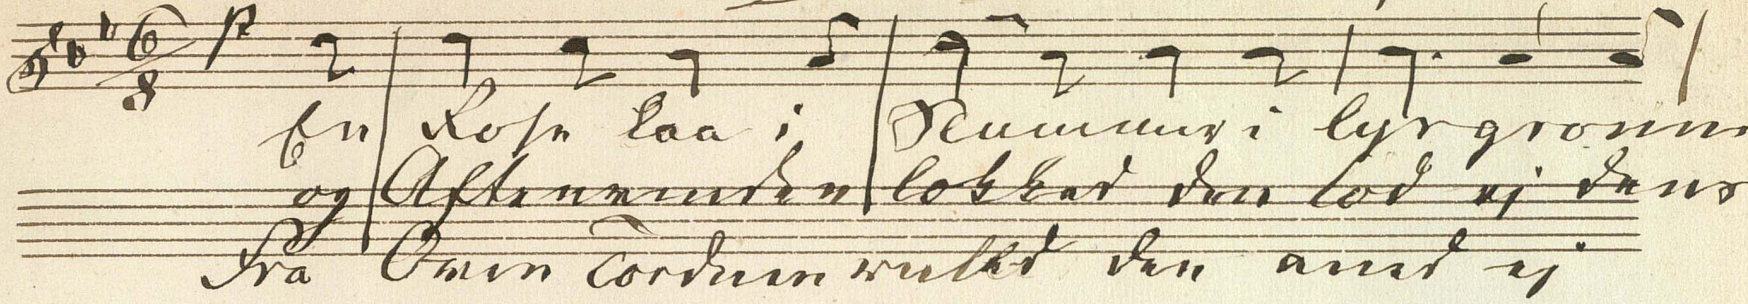 6
8
p
En Rose laa i Kummer i lysgrønne
og Aftenvinden lokked den lod ej dens
fra Oven Tordnen rulled den amd ej